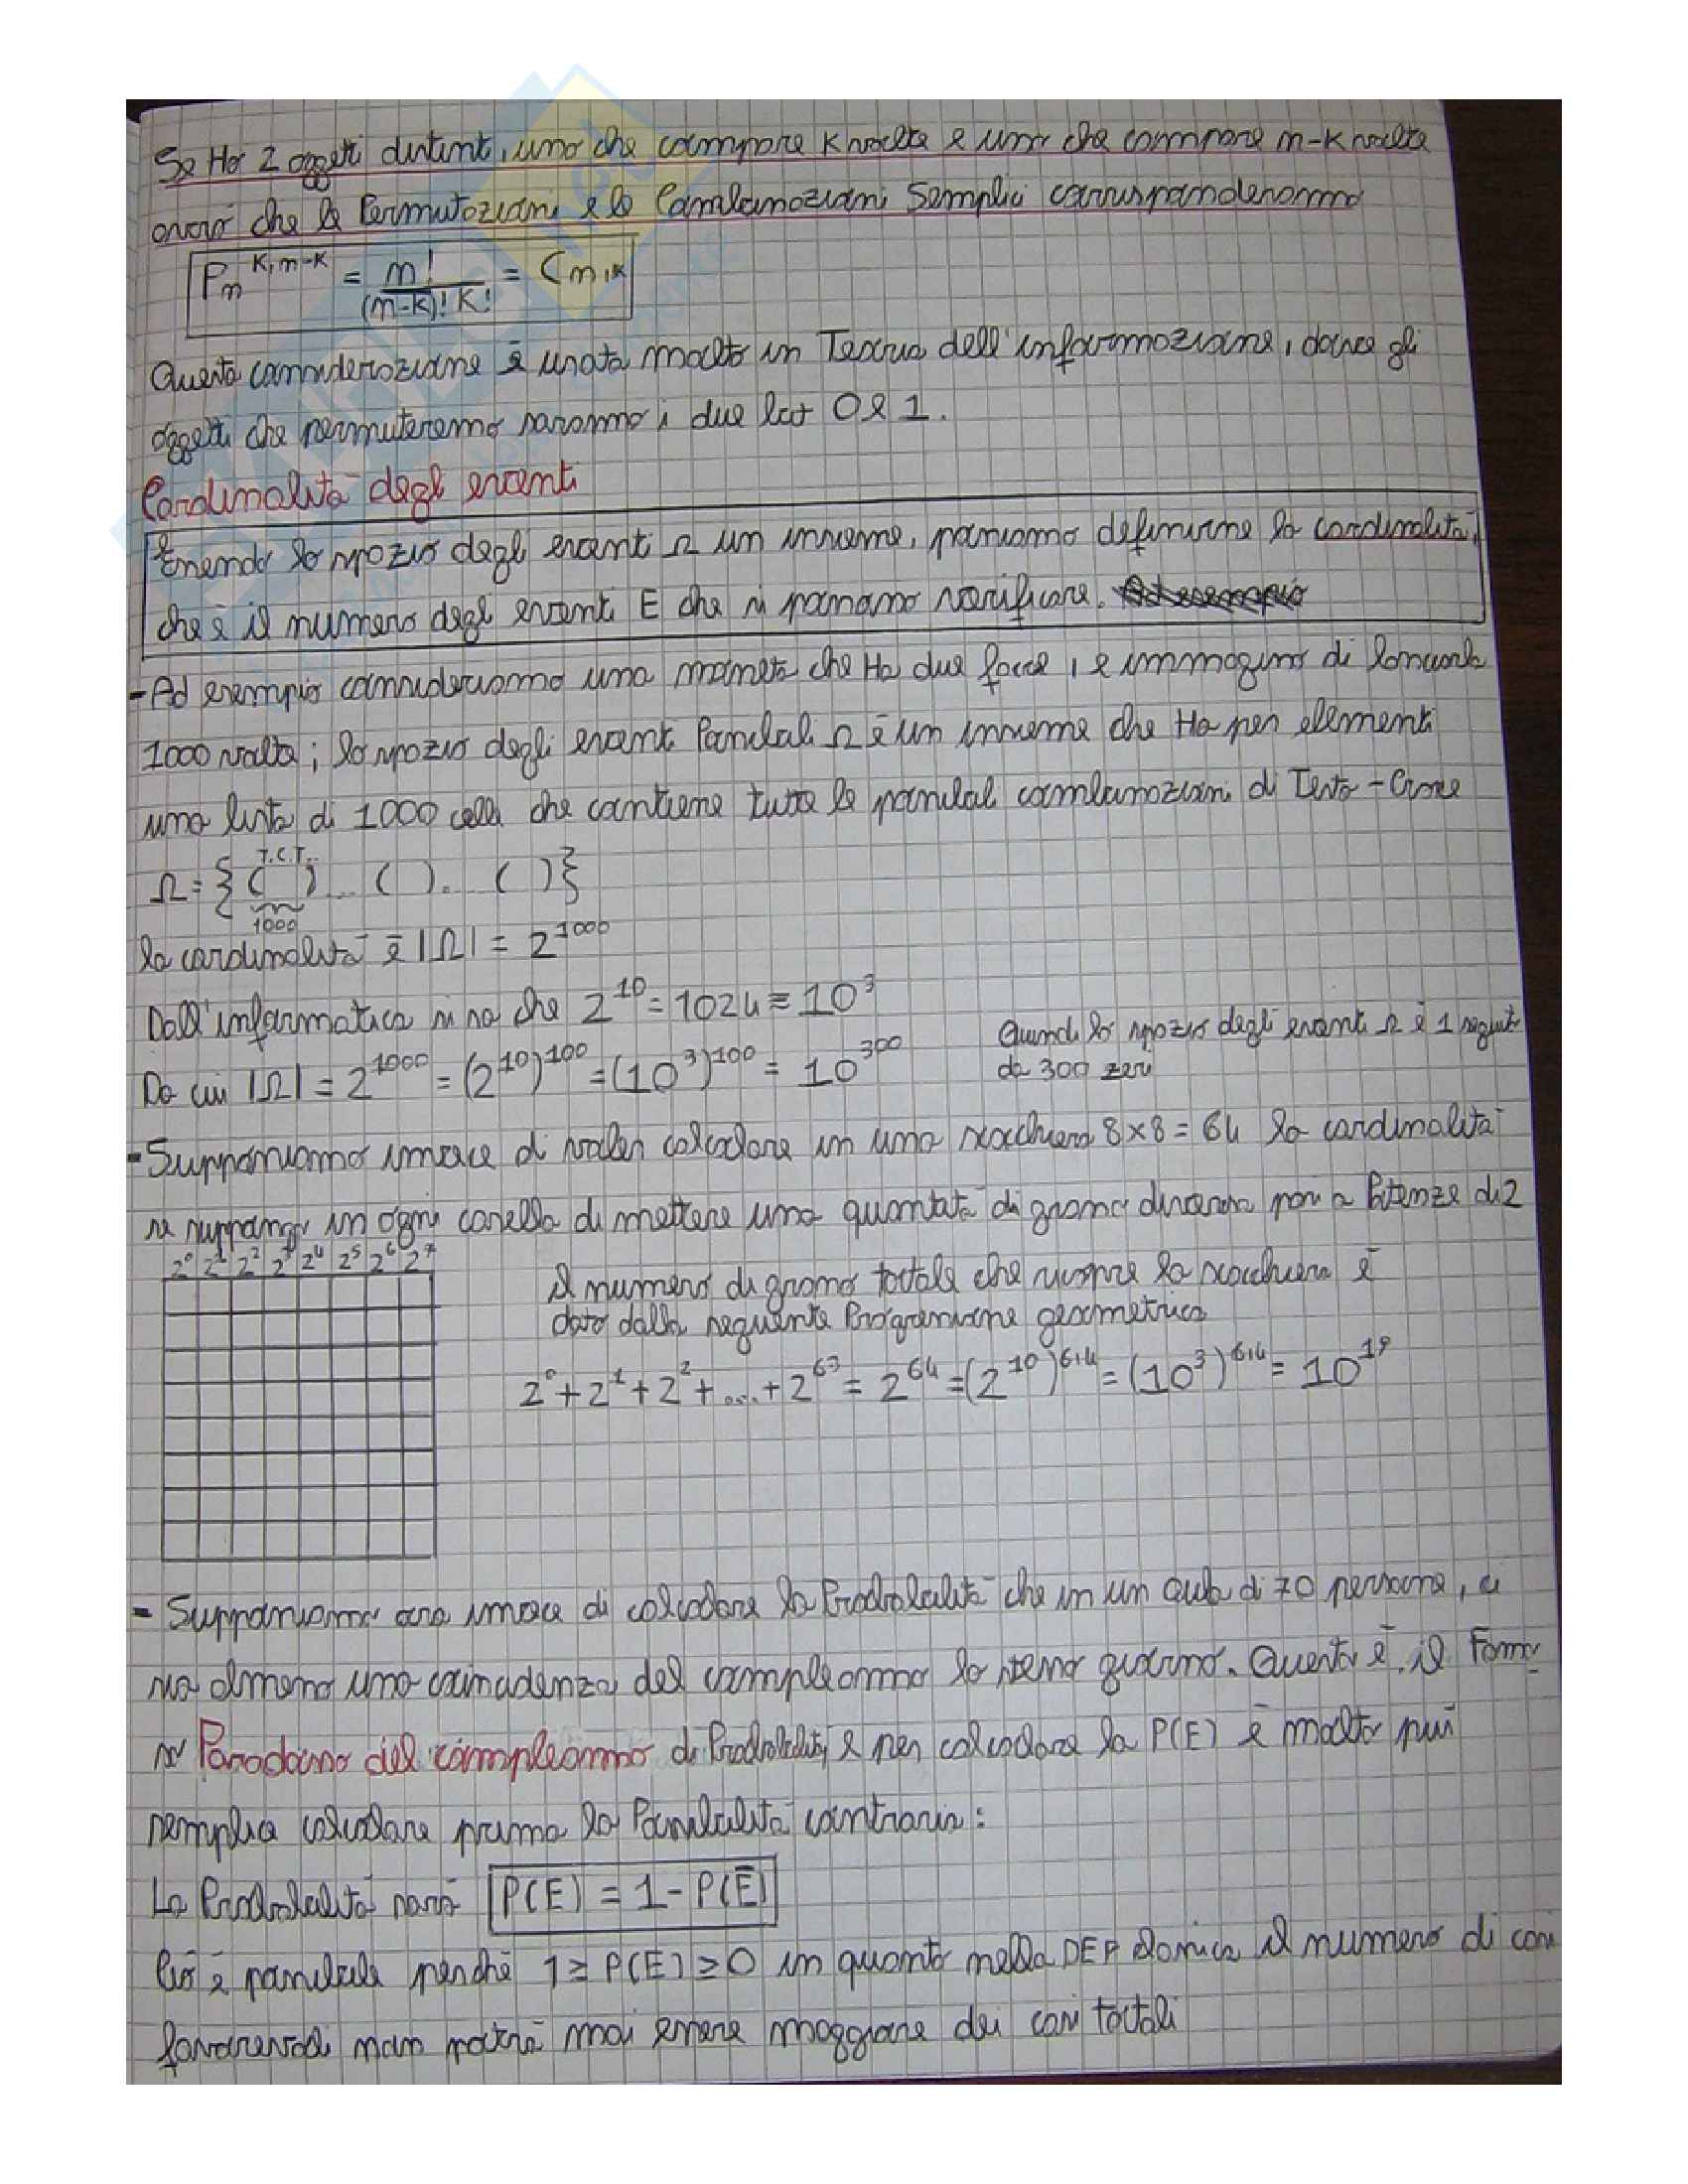 Se Ho 2 oggetti distinti, uno che compare K volte e uno che compare n-K volte
avrò che le Permutazioni e le Combinazioni Semplici corrisponderanno
Pₙ^{K,n-K} = n! / (n-K)! K! = Cn,K
Questa considerazione è usata molto in Teoria dell'informazione, dove gli
oggetti che permuteremo saranno i due bit 0 e 1.
Cardinalità degli eventi
Essendo lo spazio degli eventi Ω un insieme, possiamo definirne la cardinalità,
che è il numero degli eventi E che si possano verificare.
- Ad esempio consideriamo una moneta che Ha due facce, e immagino di lanciarla
1000 volte; lo spazio degli eventi Possibili Ω è un insieme che Ha per elementi
una lista di 1000 celle che contiene tutte le possibili combinazioni di Testa-Croce
T.C.T..
Ω = {( ) ... ( ) .. ( )}
1000
la cardinalità è |Ω| = 2^1000
Dall'informatica si sa che 2^10 = 1024 ≅ 10^3
Da cui |Ω| = 2^1000 = (2^10)^100 = (10^3)^100 = 10^300
Quindi lo spazio degli eventi Ω è 1 seguit
da 300 zeri
- Supponiamo invece di voler calcolare in una scacchiera 8×8=64 la cardinalità
se suppongo in ogni casella di mettere una quantità di grano diversa pari a Potenze di 2
2^0 2^1 2^2 2^3 2^4 2^5 2^6 2^7
il numero di grano totale che ricopre la scacchiera è
dato dalla seguente Progressione geometrica
2^0+2^1+2^2+....+2^63 = 2^64 = (2^10)^6,4 = (10^3)^6,4 = 10^19
- Supponiamo ora invece di calcolare la Probabilità che in un aula di 70 persone, ci
sia almeno una coincidenza del compleanno lo stesso giorno. Questo è il Famo-
so Paradosso del compleanno di Probability e per calcolare la P(E) è molto più
semplice calcolare prima la Possibilità contraria:
La Probabilità sarà P(E) = 1 - P(Ē)
Ciò è possibile perchè 1 ≥ P(E) ≥ 0 in quanto nella DEF classica il numero di casi
favorevoli non potrà mai essere maggiore dei casi totali